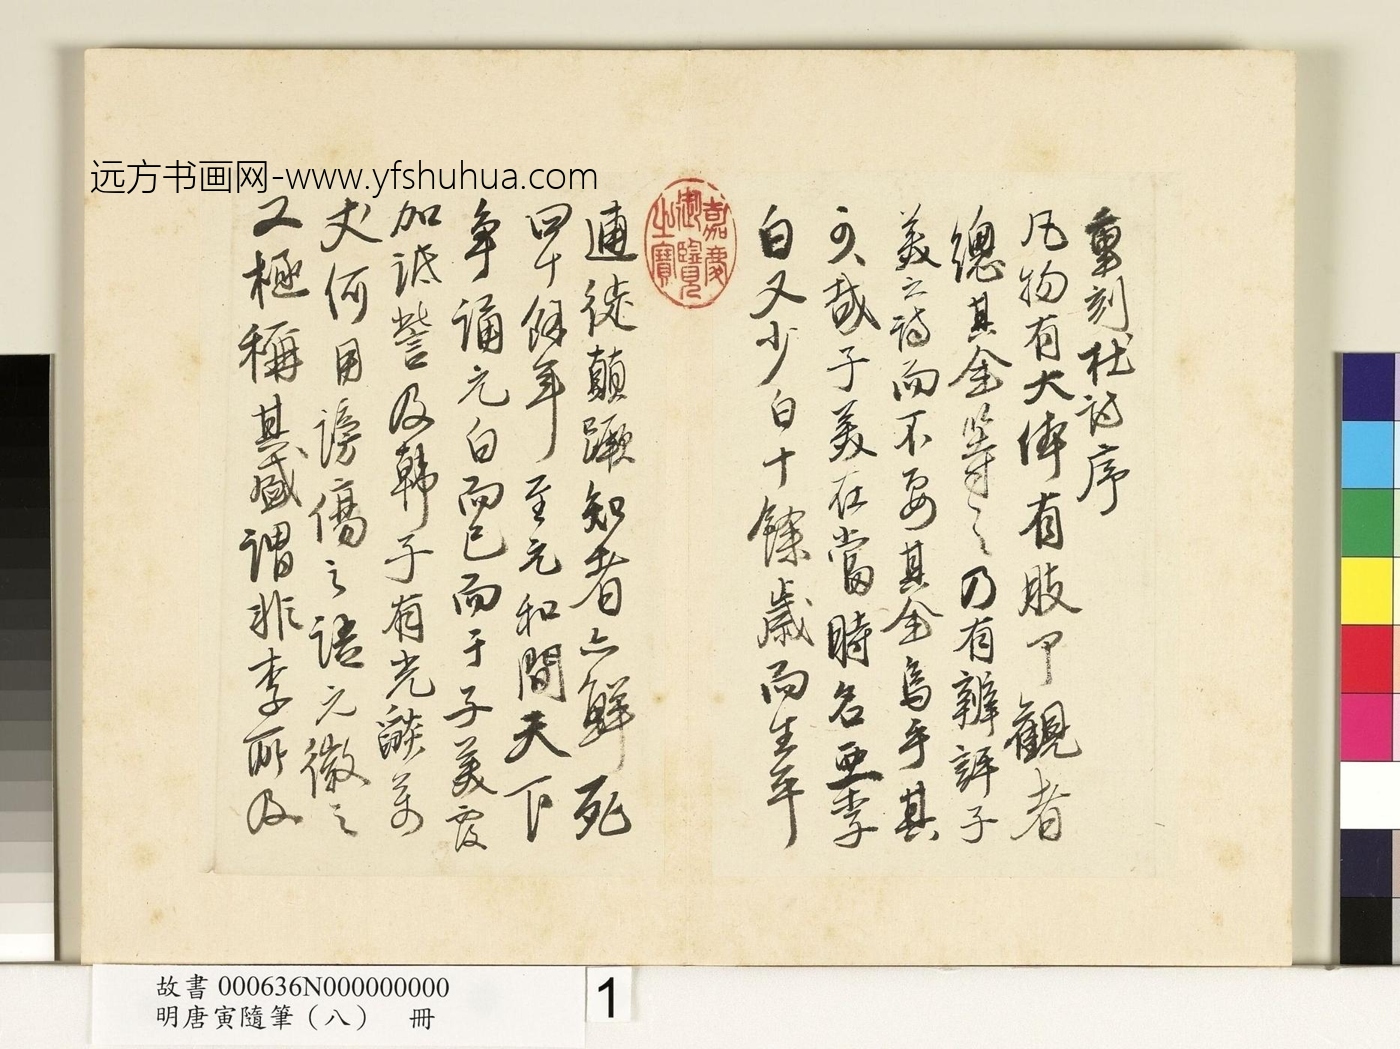 远方书画网-www.yfshuhua.com
重刻杜詩序
凡物有大體有肢甲觀者
總其全籌之乃有辨評子
美之詩而不要其全烏乎其
可哉子美在當時名亞李
白又少白十餘歲而生平
逋徒顛蹶知者亦鮮死
四十餘年至元和間天下
爭誦元白而已而于子美覆
加詆訾及韓子有光燄萬
丈何用謗傷之語元微之
又極稱其盛謂非李所及
嘉慶御覽之寶
故書 000636N000000000
明唐寅隨筆（八） 冊
1